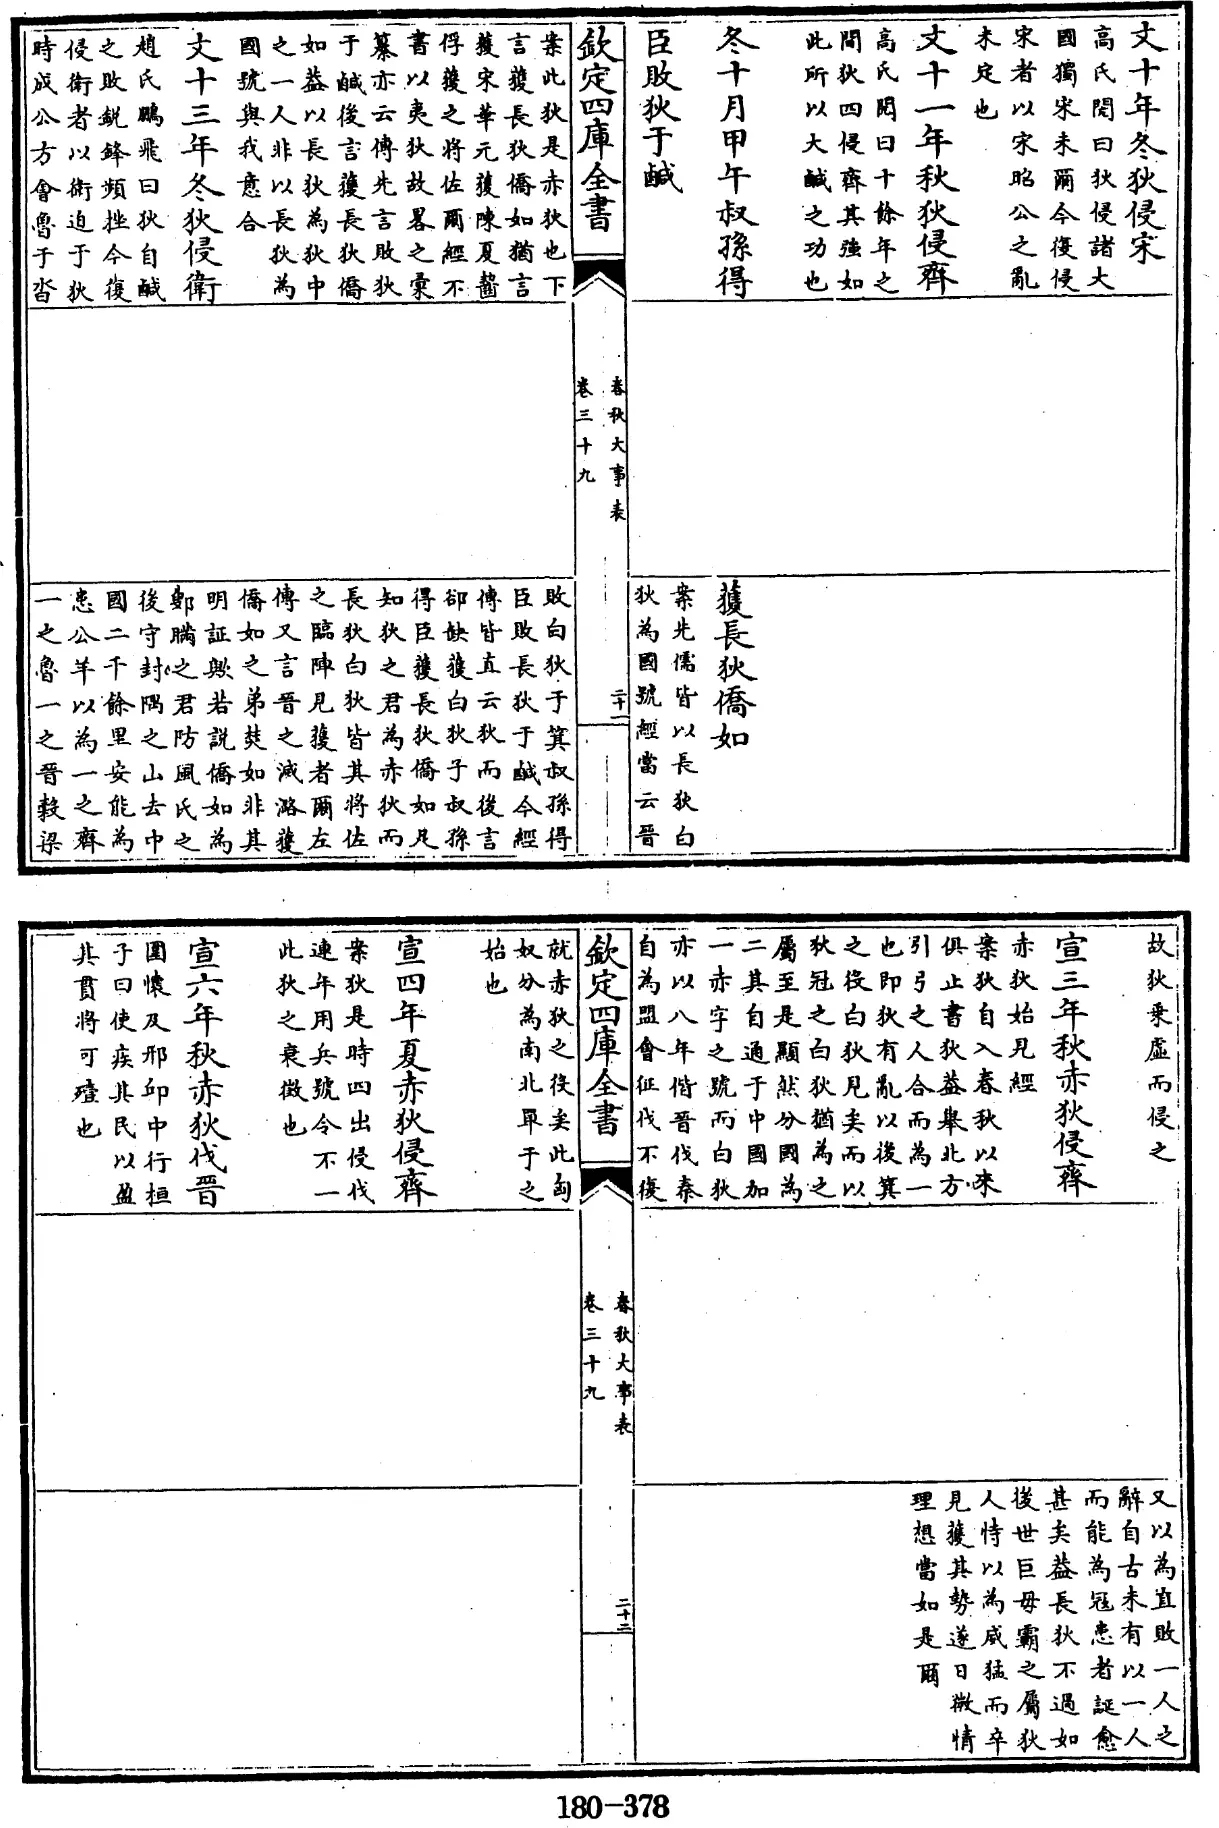 文十年冬狄侵宋
高氏閌曰狄侵諸大
國獨宋未爾今復侵
宋者以宋昭公之亂
未定也
文十一年秋狄侵齊
高氏閌曰十餘年之
間狄四侵齊其強如
此所以大鹹之功也
冬十月甲午叔孫得
臣敗狄于鹹
獲長狄僑如
案先儒皆以長狄白
狄為國號經當云晉
欽定四庫全書
春秋大事表
卷三十九
二十一
案此狄是赤狄也下
言獲長狄僑如猶言
獲宋華元獲陳夏齧
俘獲之將佐爾經不
書以夷狄故畧之彙
纂亦云傳先言敗狄
于鹹後言獲長狄僑
如葢以長狄為狄中
之一人非以長狄為
國號與我意合
文十三年冬狄侵衛
趙氏鵬飛曰狄自鹹
之敗銳鋒頻挫今復
侵衛者以衛迫于狄
時成公方會魯于沓
敗白狄于箕叔孫得
臣敗長狄于鹹今經
傳皆直云狄而後言
郤缺獲白狄子叔孫
得臣獲長狄僑如足
知狄之君為赤狄而
長狄白狄皆其將佐
之臨陣見獲者爾左
傳又言晉之滅潞獲
僑如之弟焚如非其
明証歟若說僑如為
鄭瞞之君防風氏之
後守封隅之山去中
國二千餘里安能為
患公羊以為一之齊
一之魯一之晉穀梁
故狄乗虛而侵之
宣三年秋赤狄侵齊
赤狄始見經
案狄自入春秋以來
俱止書狄葢舉北方
引弓之人合而為一
也即狄有亂以後箕
之役白狄見矣而以
狄冠之白狄猶為之
屬至是顯然分國為
二其自通于中國加
一赤字之號而白狄
亦以八年偕晉伐秦
自為盟會征伐不復
又以為直敗一人之
辭自古未有以一人
而能為冦患者誕愈
甚矣葢長狄不過如
後世巨毋霸之屬狄
人恃以為威猛而卒
見獲其勢遂日微情
理想當如是爾
欽定四庫全書
春秋大事表
卷三十九
二十二
就赤狄之役矣此匈
奴分為南北單于之
始也
宣四年夏赤狄侵齊
案狄是時四出侵伐
連年用兵號令不一
此狄之衰徴也
宣六年秋赤狄伐晉
圍懷及邢邱中行桓
子曰使疾其民以盈
其貫將可殪也
180-378